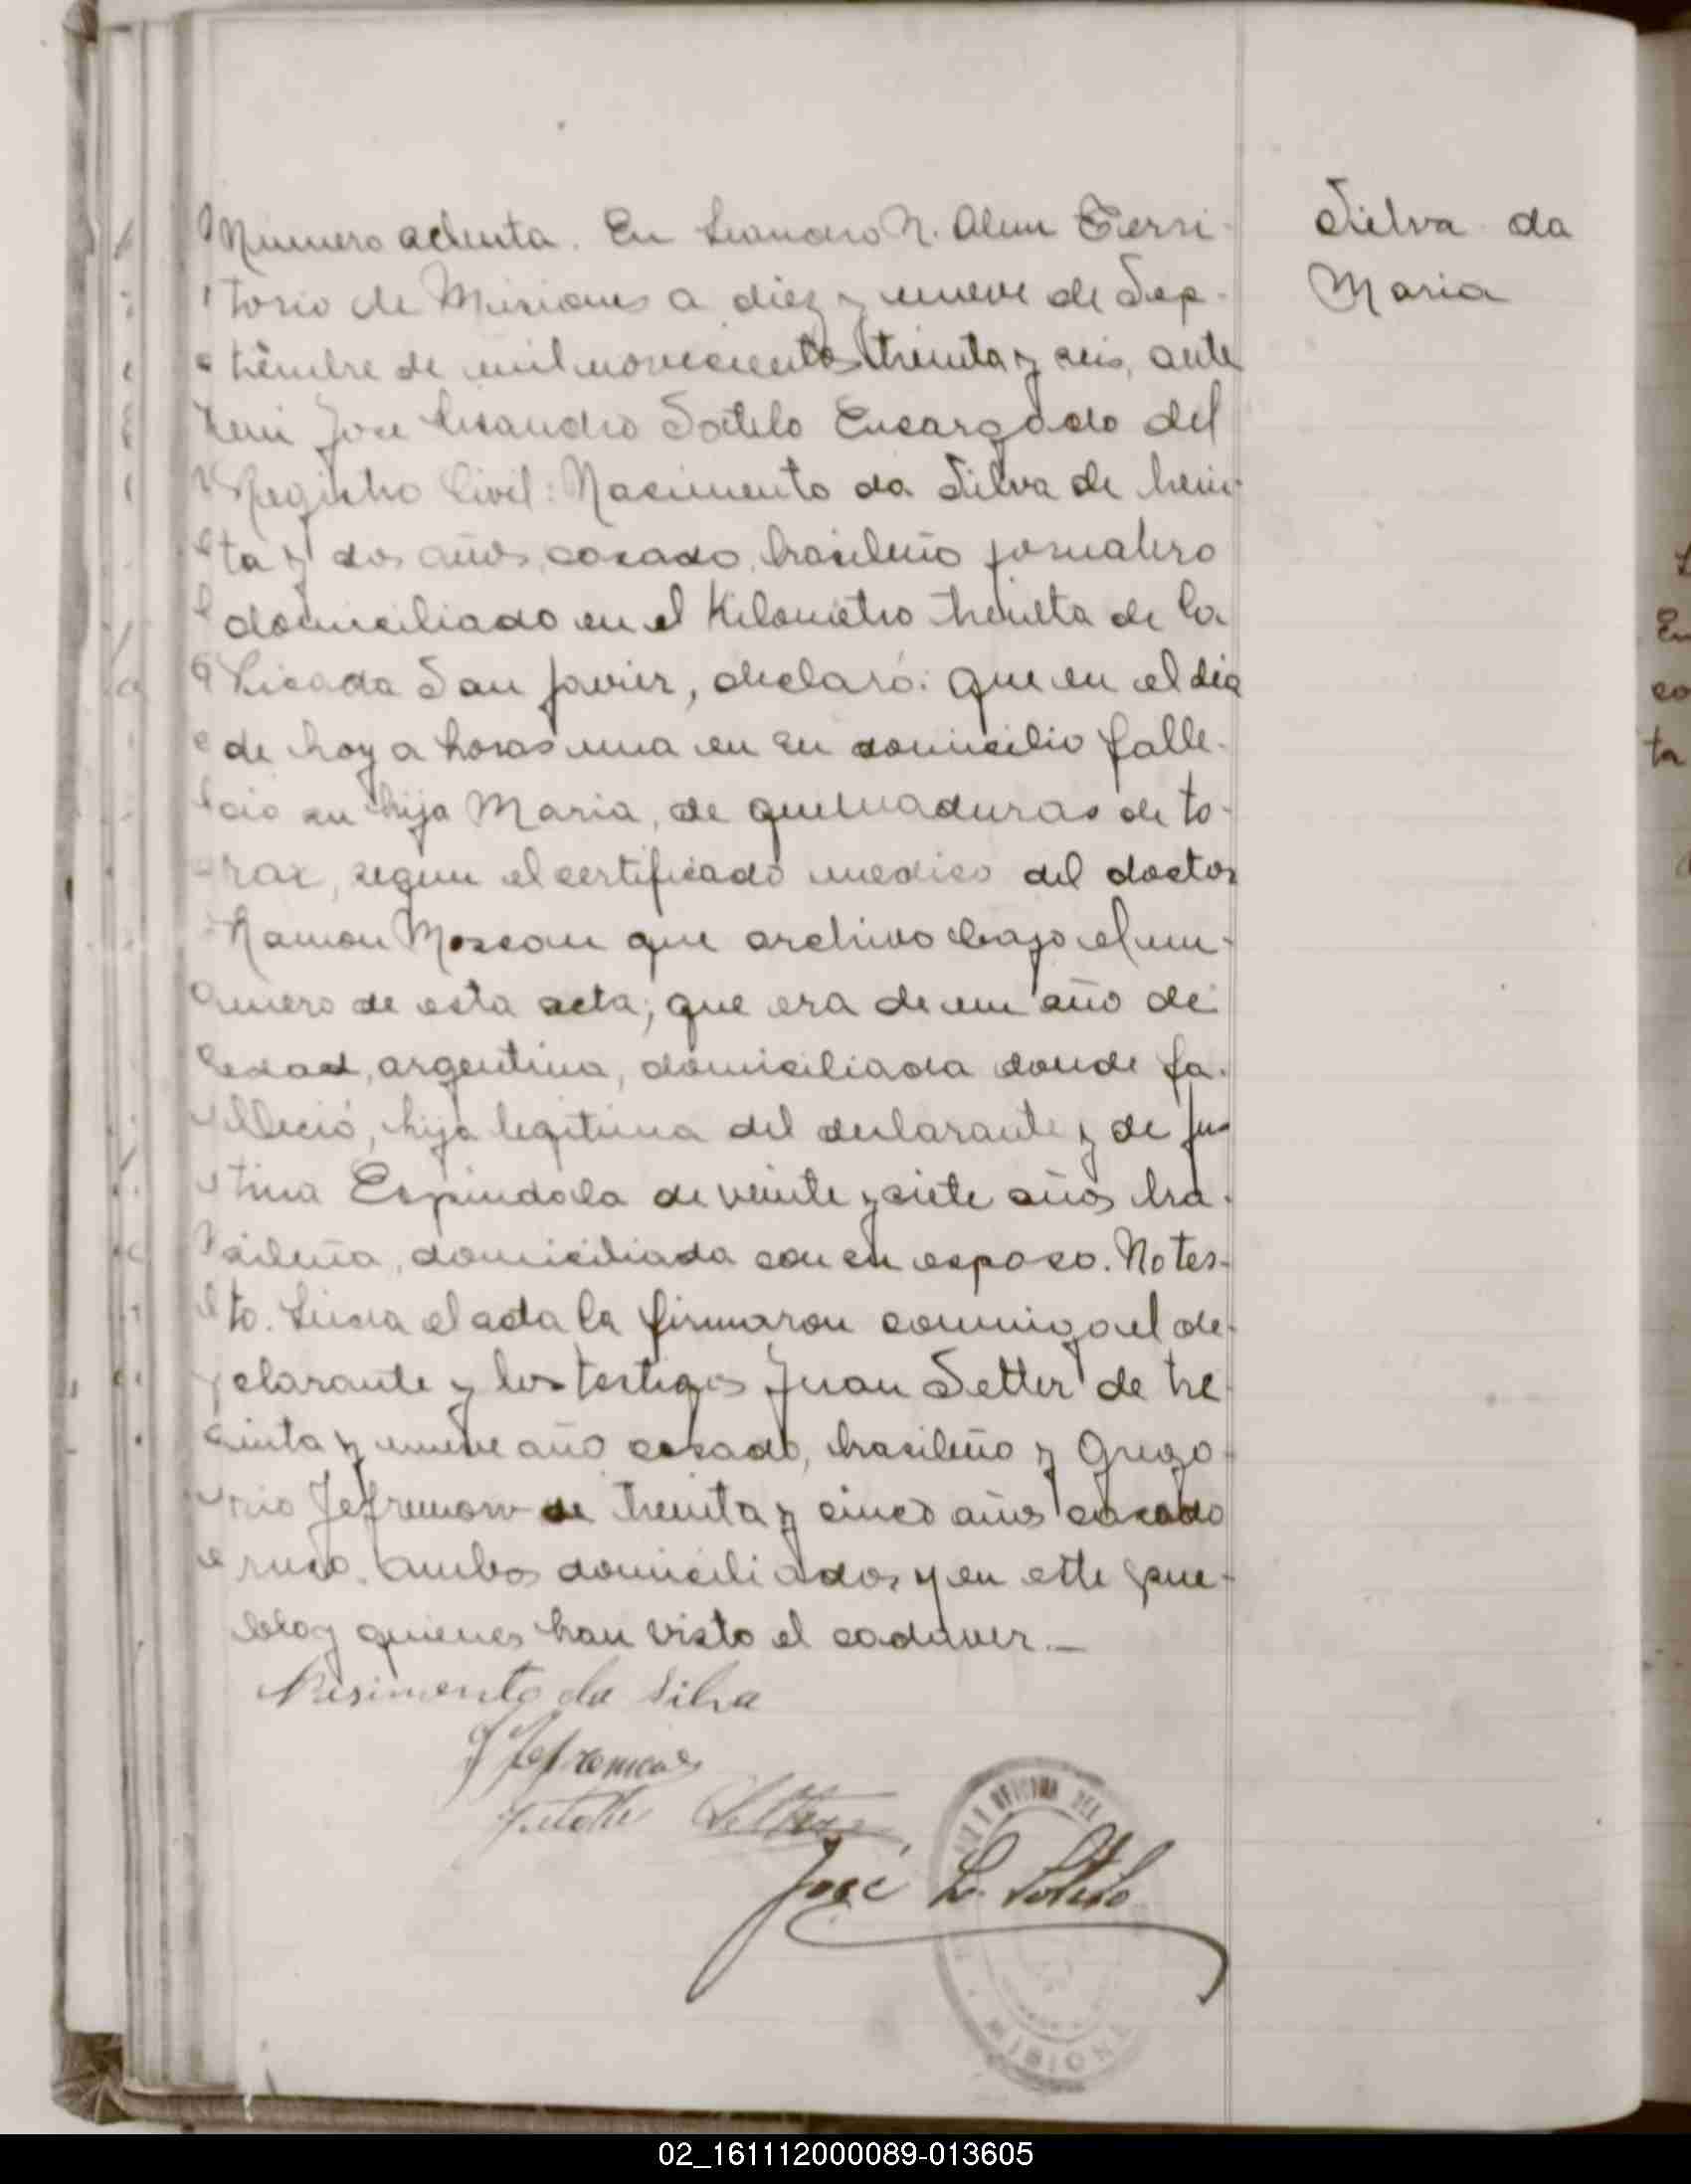 Numero ochenta. En Leandro N. Alem Terri-
torio de Misiones a diez y nueve de Sep-
tiembre de mil novecientos treinta y seis, ante
mi Jose Lisandro Sotelo Encargado del
Registro Civil: Nacimento da Silva de trein-
ta y dos años, casado, brasileño jornalero
domiciliado en el Kilometro treinta de la
Picada San Javier, declaró: que en el dia
de hoy a horas una en su domicilio falle-
cio su hija Maria, de quemaduras de to-
rax, segun el certificado medico del doctor
Ramon que archivo bajo el nu-
mero de esta acta; que era de un año de
edad, argentina, domiciliada donde fa-
lleció, hija legitima del declarante y de Jus
tina Espindola de veinte y siete años bra-
sileña, domiciliada con su esposo. No tes-
to. Leida el acta la firmaron conmigo el de-
clarante y los testigos Juan Setter de tre
inta y nueve año casado, brasileño y Grego-
rio Jefremow de treinta y cinco años casado
ruso. ambos domiciliados y en este pue-
blo y quienes han visto el cadaver.—
Nasimento da Silva
José L. Sotelo
OFICINA DEL
Silva da
Maria
En
co
ta
02_161112000089-013605